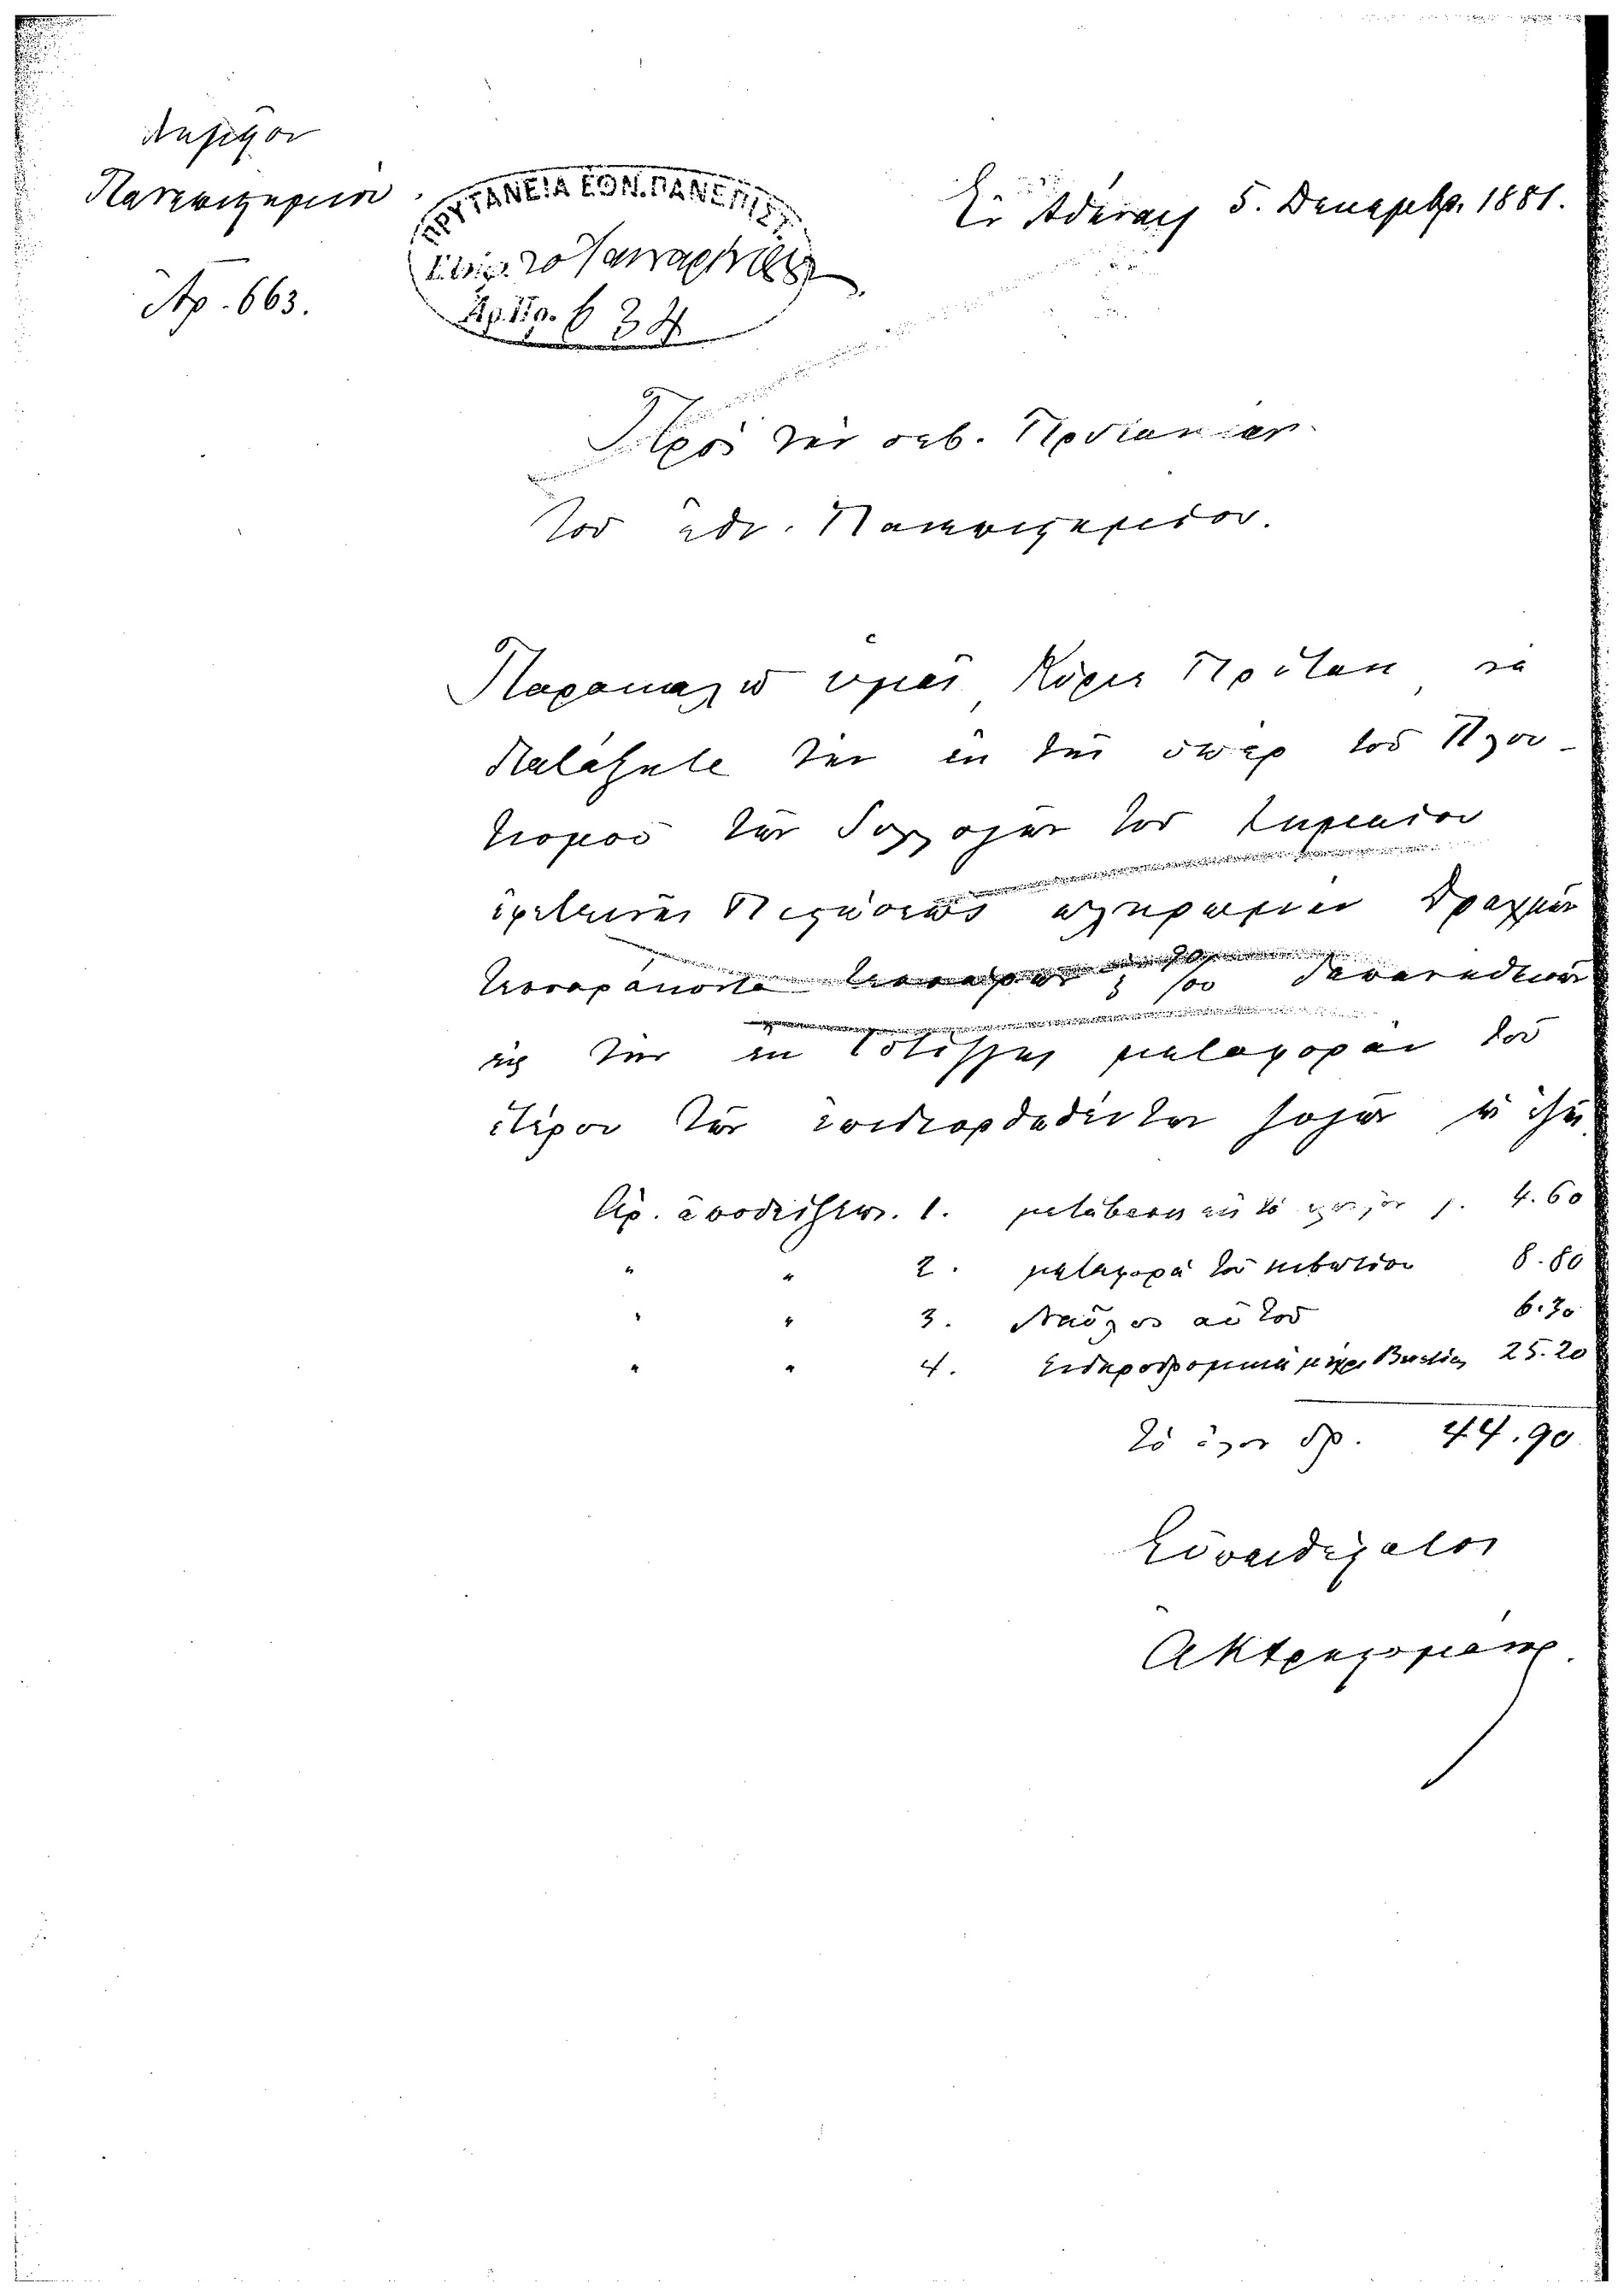 Χημεῖον
Πανεπιστημίου
Ἀρ. 663.
ΠΡΥΤΑΝΕΙΑ ΕΘΝ. ΠΑΝΕΠΙΣΤ.
20 Ιανουαρίου
Ἀρ. Πρ. 634
Ἐν Ἀθήναις 5. Δεκεμβρ. 1881.
Πρὸς τὴν σεβ. Πρυτανείαν
τοῦ ἐθν. Πανεπιστημίου.
Παρακαλῶ ὑμᾶς, Κύριε Πρύτανι, νὰ
διατάξητε τὴν ἐκ τῆς ὑπὲρ τοῦ Πλου-
τισμοῦ τῶν Συλλογῶν τοῦ Χημείου
πιστώσεως πληρωμὴν δραχμῶν
τεσσαράκοντα τεσσάρων 90/100 δαπανηθεισῶν
εἰς τὴν ἐκ μεταφορὰν τοῦ
ἑτέρου τῶν ἐπιδιορθωθέντων ζυγῶν
Ἀρ. ἀποδείξεων. 1. μετάβασις εἰς τὸ 4.60
" " 2. μεταφορὰ τοῦ κιβωτίου 8.80
" " 3. Ναῦλος αὐτοῦ 6.30
" " 4. Σιδηροδρομικὰ μέχρι 25.20
τὸ ὅλον δρ. 44.90
Εὐπειθέστατος